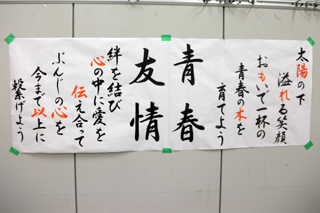 太陽の下
溢れる笑顔
おもいで一杯の
青春の木を
育てよう
青春
友情
絆を結び
心の中に愛を
伝え合って
ぶんじの心を
今まで以上に
繋げよう